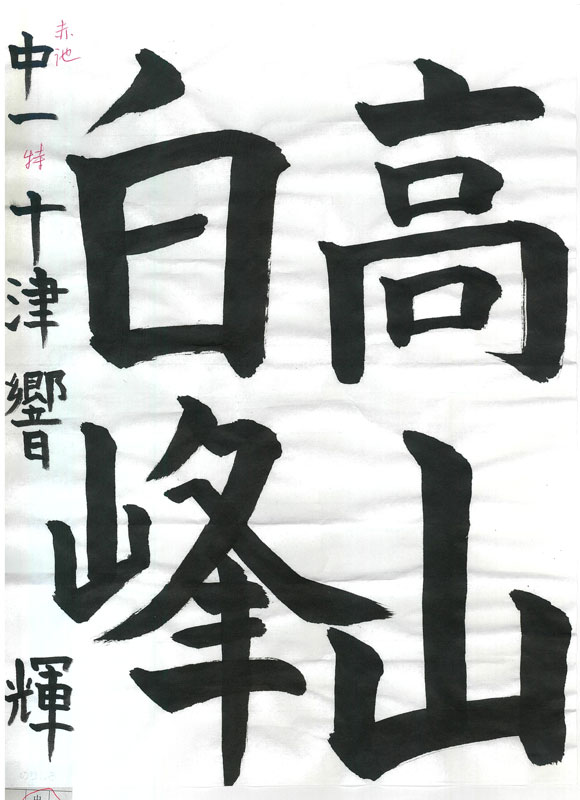 高山
白峰
中一 十津 響輝
赤池
特